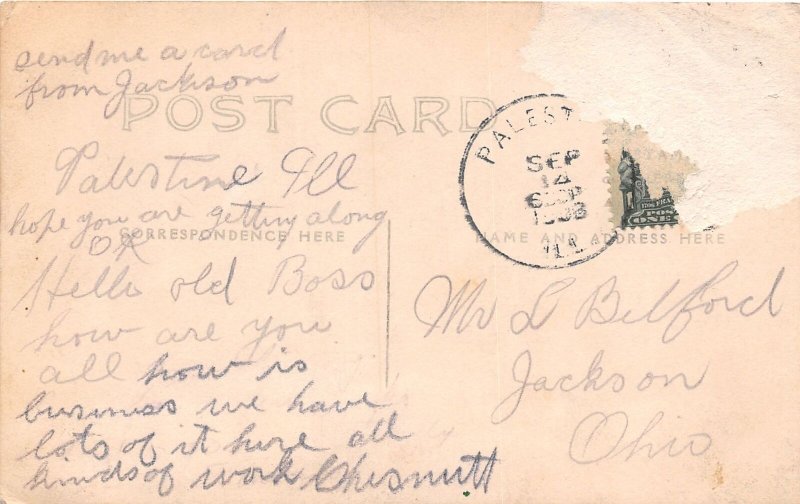 send me a card
from Jackson
POST CARD
Palestine Ill
hope you are getting along
OK
CORRESPONDENCE HERE
Hello old Boss
how are you
all how is
business we have
lots of it here all
kinds of work Chesnutt
PALEST
SEP
14
ILL
NAME AND ADDRESS HERE
Mr L Belford
Jackson
Ohio